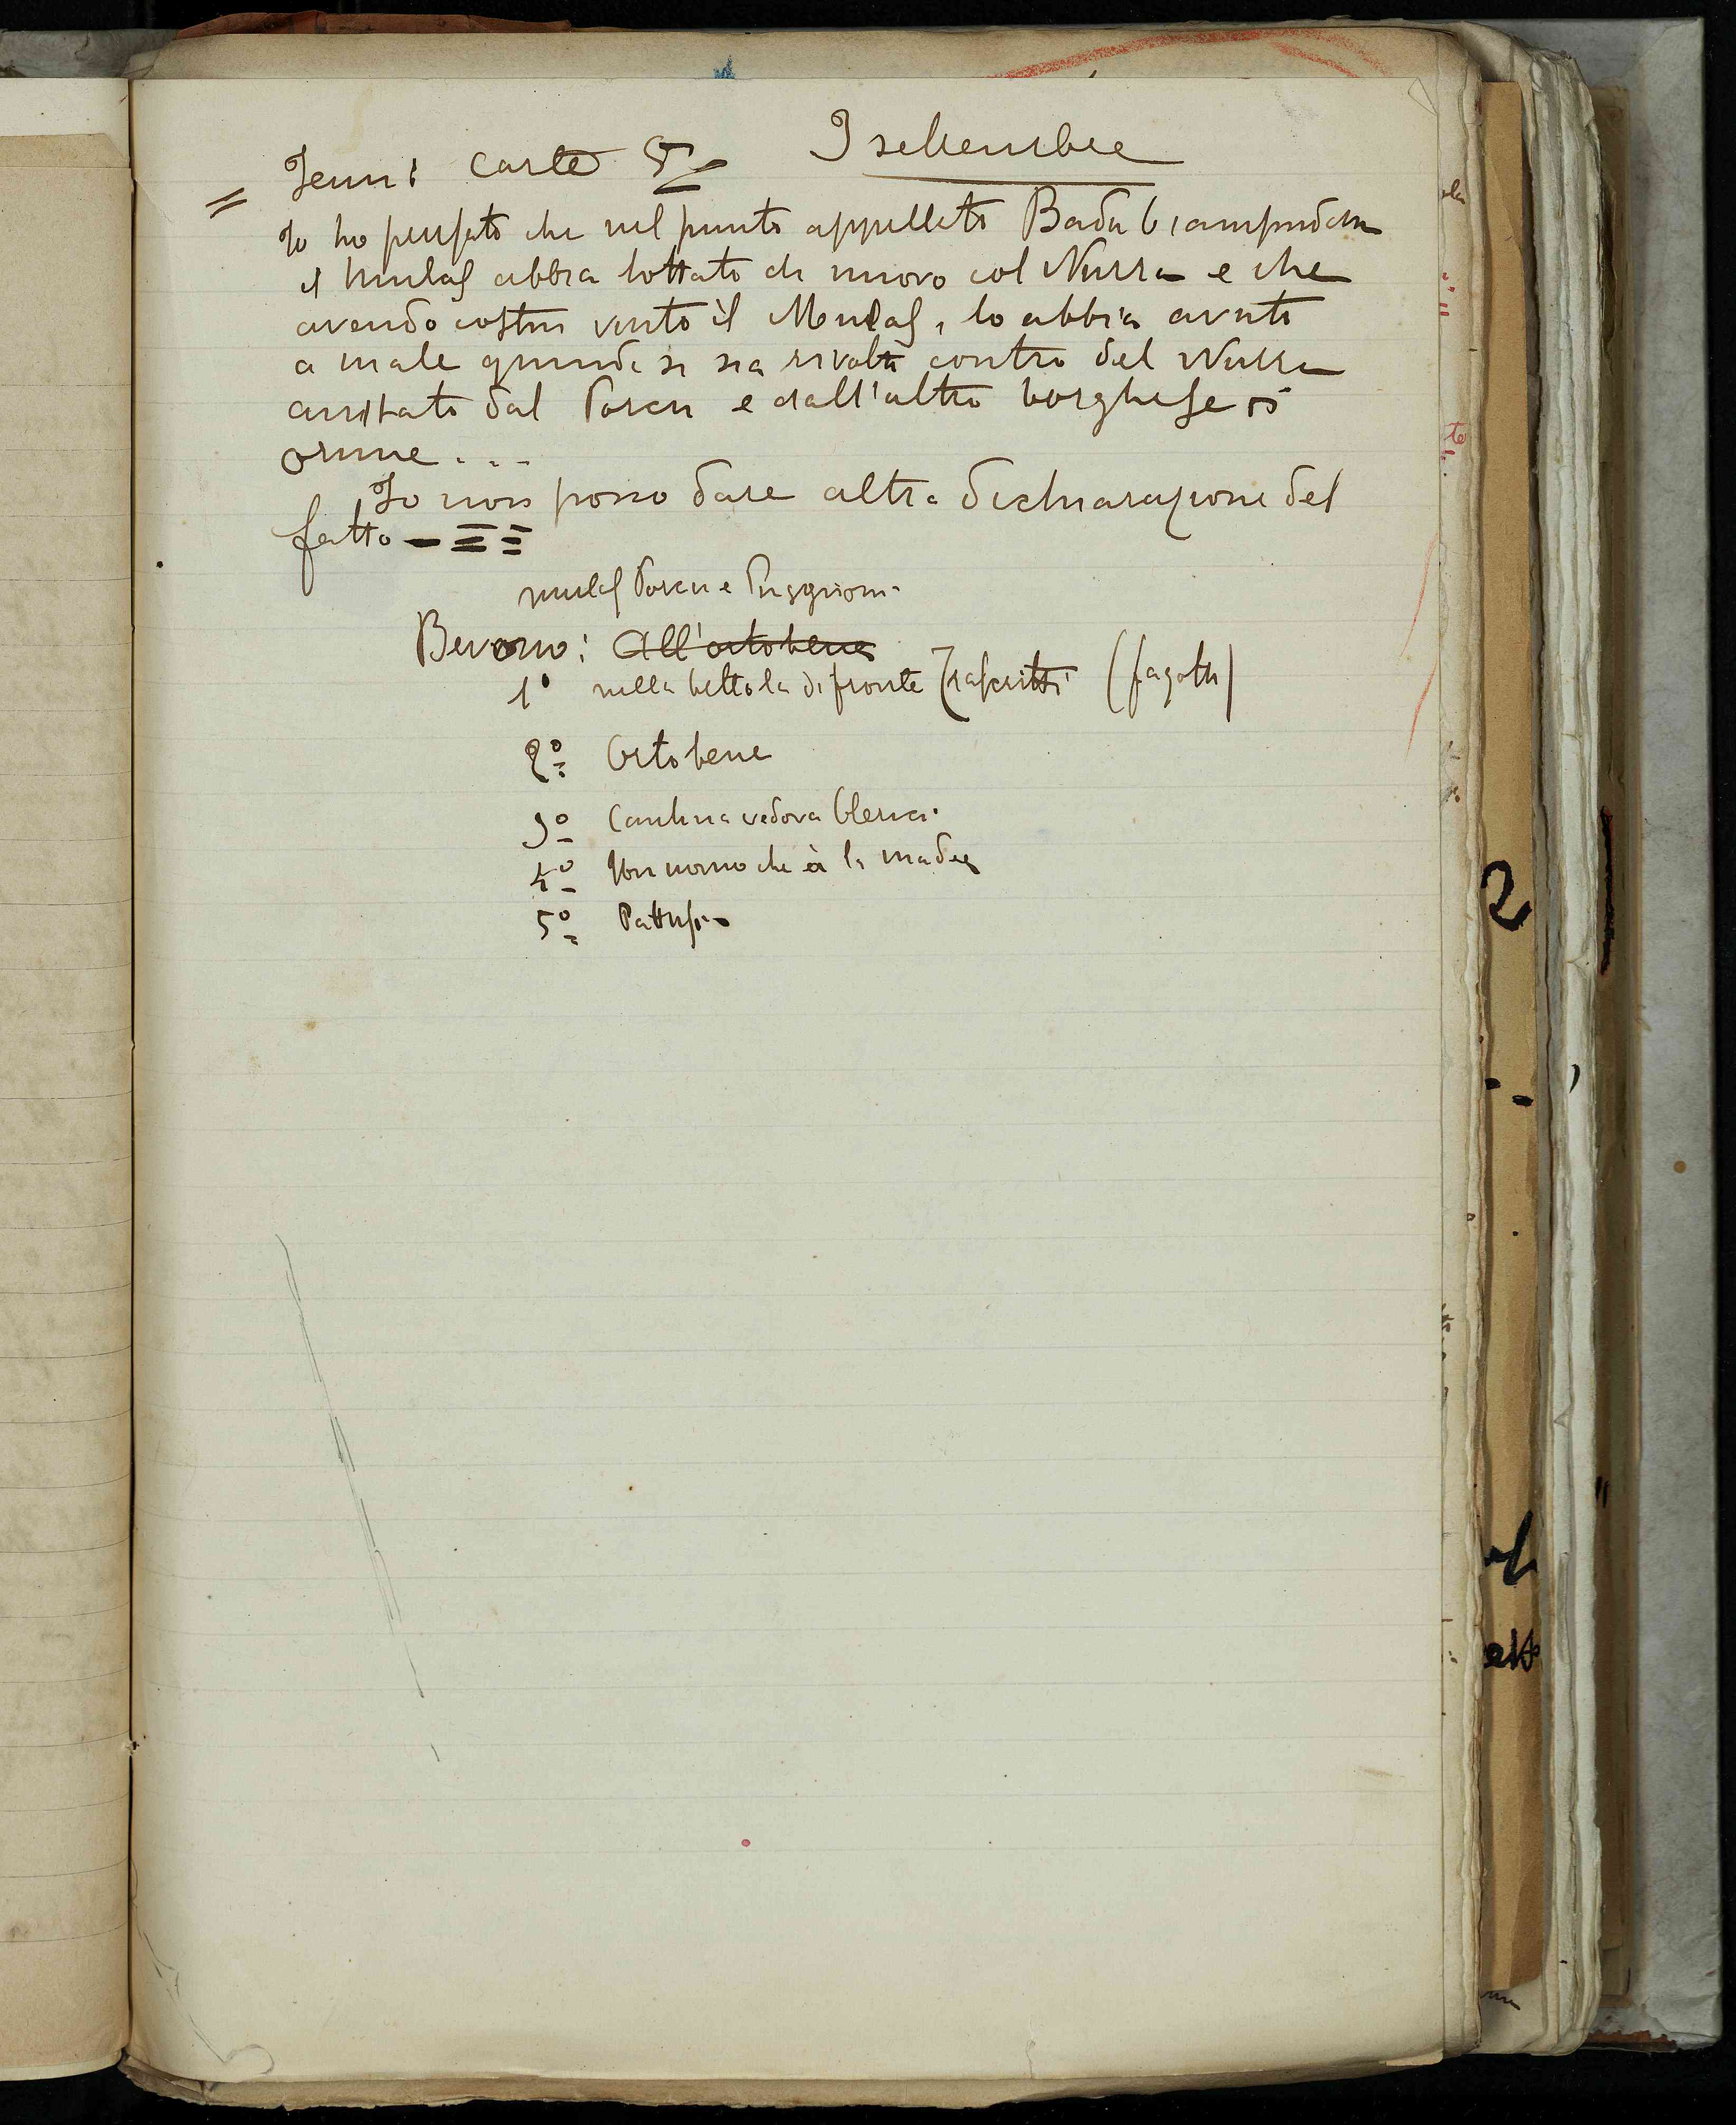 = Ienni carte 5 — I settembre
Io ho pensato che nel punto appellato Badu
il Mulas abbia lottato di nuovo col Nurra e che
avendo costui vinto il Mulas, lo abbia avuto
a male quindi si sia rivolto contro del Nurra
aiutato dal Porcu e dall'altro borghese di
orune...
Io non posso dare altra dichiarazione del
fatto
mulas Porcu e Puggioni
Bevono: All'ortobene
1° nella bettola di fronte (fagotti)
2° Ortobene
3° Cantina vedova
4° uomo che à la madre
5° Pattusi